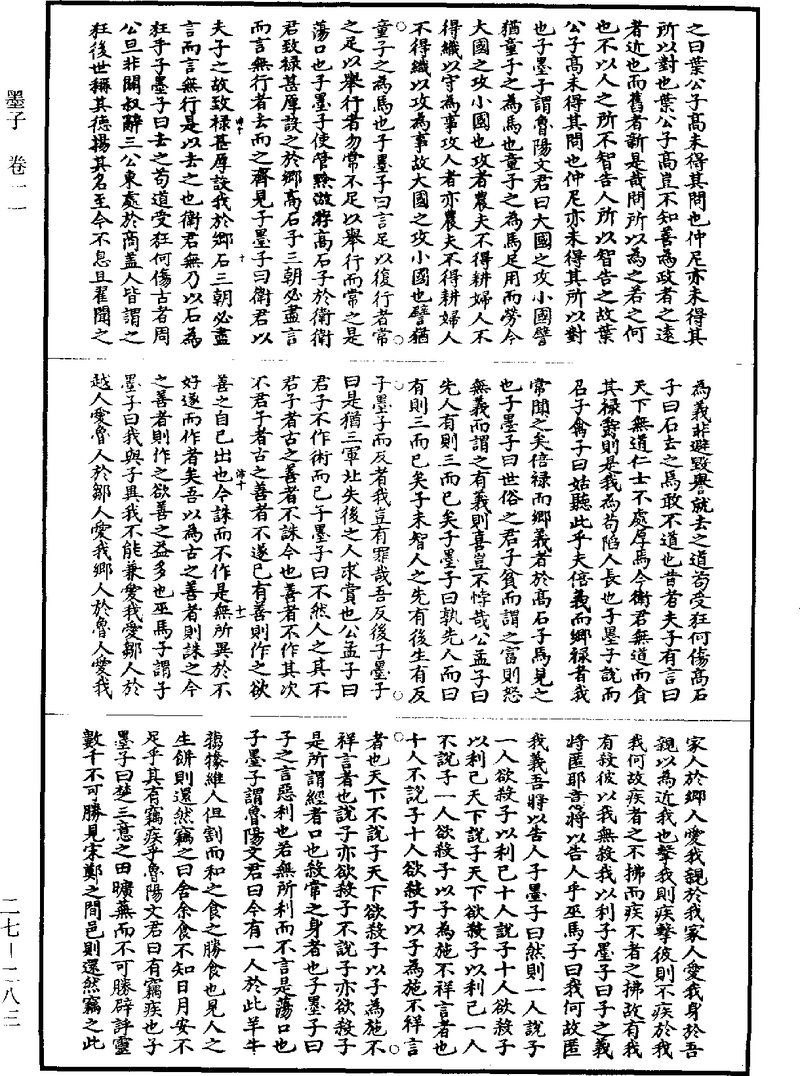 之曰葉公子高未得其問也仲尼亦未得其
所以對也葉公子高豈不知善為政者之遠
者近也而舊者新是哉問所以為之若之何
也不以人之所不智告人所以智告之故葉
公子高未得其問也仲尼亦未得其所以對
也子墨子謂魯陽文君曰大國之攻小國譬
猶童子之為馬也童子之為馬足用而勞今
大國之攻小國也攻者農夫不得耕婦人不
得織以守為事攻人者亦農夫不得耕婦人
不得織以攻為事故大國之攻小國也譬猶
童子之為馬也子墨子曰言足以復行者常
之足以舉行者勿常不足以舉行而常之是
蕩口也子墨子使管黔敖游高石子於衛衛
君致祿甚厚設之於鄉高石子三朝必盡言
而言無行者去而之齊見子墨子曰衛君以
夫子之故致祿甚厚設我於鄉石三朝必盡
言而言無行是以去之也衛君無乃以石為
狂乎子墨子曰去之苟道受狂何傷古者周
公旦非關叔辭三公東處於商蓋人皆謂之
狂後世稱其德揚其名至今不息且翟聞之
為義非避毀譽就去之道苟受狂何傷高石
子曰石去之焉敢不道也昔者夫子有言曰
天下無道仁士不處厚焉今衛君無道而貪
其祿爵則是我為苟陷人長也子墨子說而
召子禽子曰姑聽此乎夫倍義而鄉祿者我
常聞之矣倍祿而鄉義者於高石子焉見之
也子墨子曰世俗之君子貧而謂之富則怒
無義而謂之有義則喜豈不悖哉公孟子曰
先人有則三而已矣子墨子曰孰先人而曰
有則三而已矣子未智人之先有後生有反
子墨子而反者我豈有罪哉吾反後子墨子
曰是猶三軍北失後之人求賞也公孟子曰
君子不作術而已子墨子曰不然人之其不
君子者古之善者不誅今也善者不作其次
不君子者古之善者不遂已有善則作之欲
善之自己出也今誅而不作是無所異於不
好遂而作者矣吾以為古之善者則誅之今
之善者則作之欲善之益多也巫馬子謂子
墨子曰我與子異我不能兼愛我愛鄒人於
越人愛魯人於鄒人愛我鄉人於魯人愛我
家人於鄉人愛我親於我家人愛我身於吾
親以為近我也擊我則疾擊彼則不疾於我
我何故疾者之不拂而疾不者之拂故有我
有殺彼以我無殺我以利子墨子曰子之義
將匿耶意將以告人乎巫馬子曰我何故匿
我義吾將以告人子墨子曰然則一人說子
一人欲殺子以利己十人說子十人欲殺子
以利己天下說子天下欲殺子以利己一人
不說子一人欲殺子以子為施不祥言者也
十人不說子十人欲殺子以子為施不祥言
者也天下不說子天下欲殺子以子為施不
祥言者也說子亦欲殺子不說子亦欲殺子
是所謂經者口也殺常之身者也子墨子曰
子之言惡利也若無所利而不言是蕩口也
子墨子謂魯陽文君曰今有一人於此羊牛
犓㹖維人但割而和之食之勝食也見人之
生餅則還然竊之曰舍余食不知日月安不
足乎其有竊疾乎魯陽文君曰有竊疾也子
墨子曰楚三意之田曠蕪而不可勝辟評靈
數千不可勝見宋鄭之間邑則還然竊之此
墨子 卷一一
二七—二八三